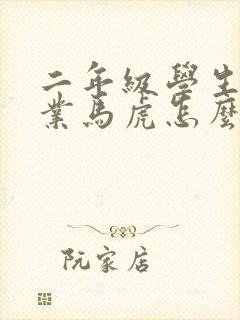 二年級學生
業馬虎怎麼
阮家店